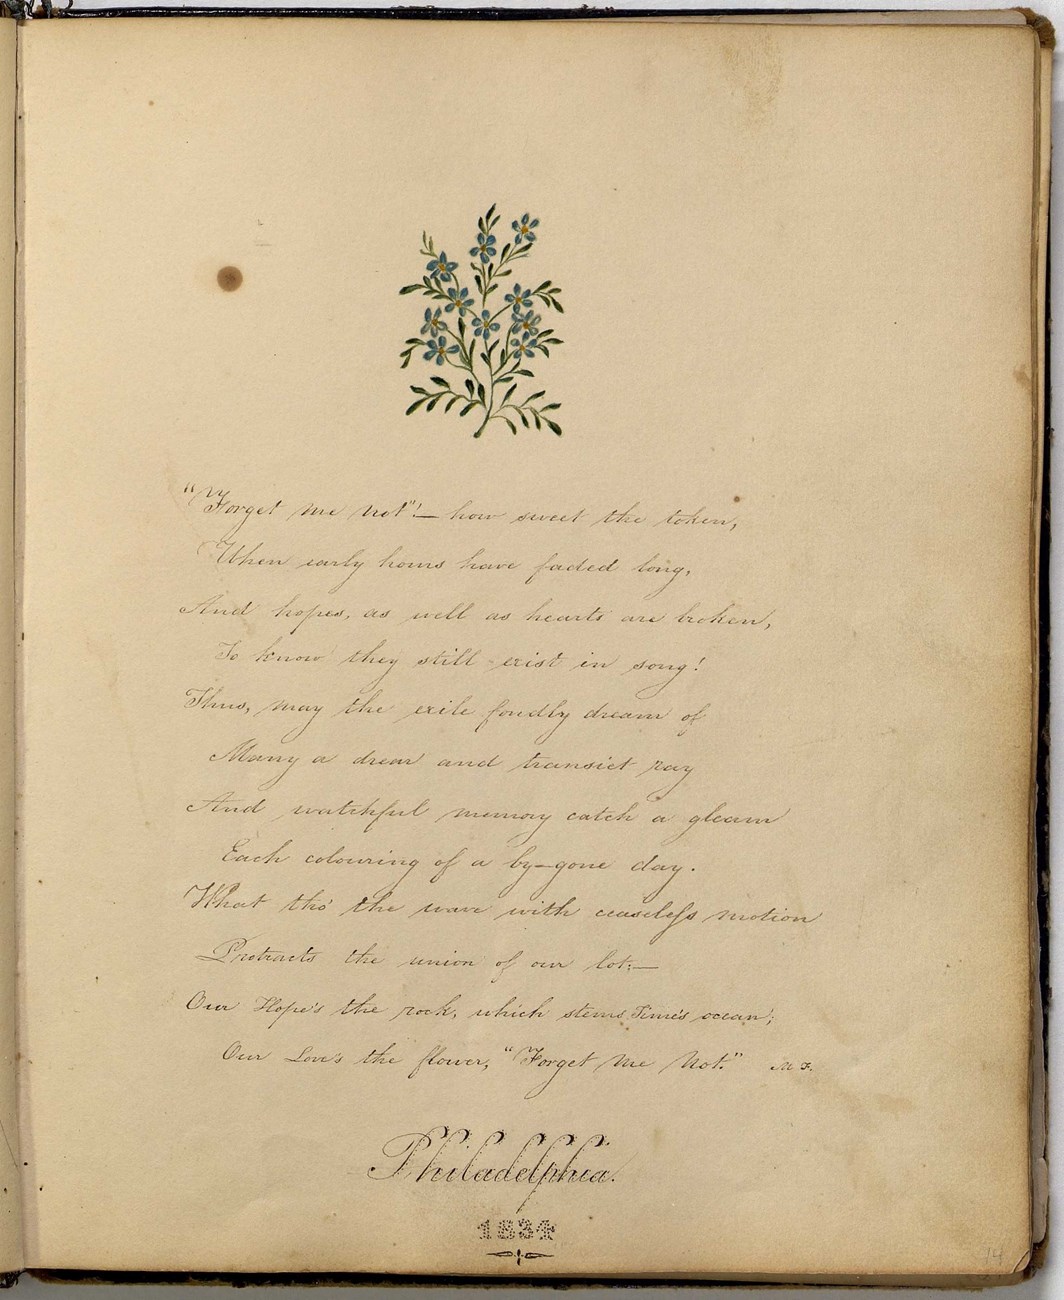 "Forget me not"!— how sweet the token,
When early hours have faded long,
And hopes, as well as hearts are broken,
To know they still exist in song!
Thus, may the exile fondly dream of
Many a drear and transiet ray
And watchful memory catch a gleam
Each colouring of a by-gone day.
What tho' the wave with ceaseless motion
Protracts the union of our lot;—
Our Hope's the rock, which stems Time's ocean;
Our Love's the flower, "Forget me Not." M F.
Philadelphia.
1834
14